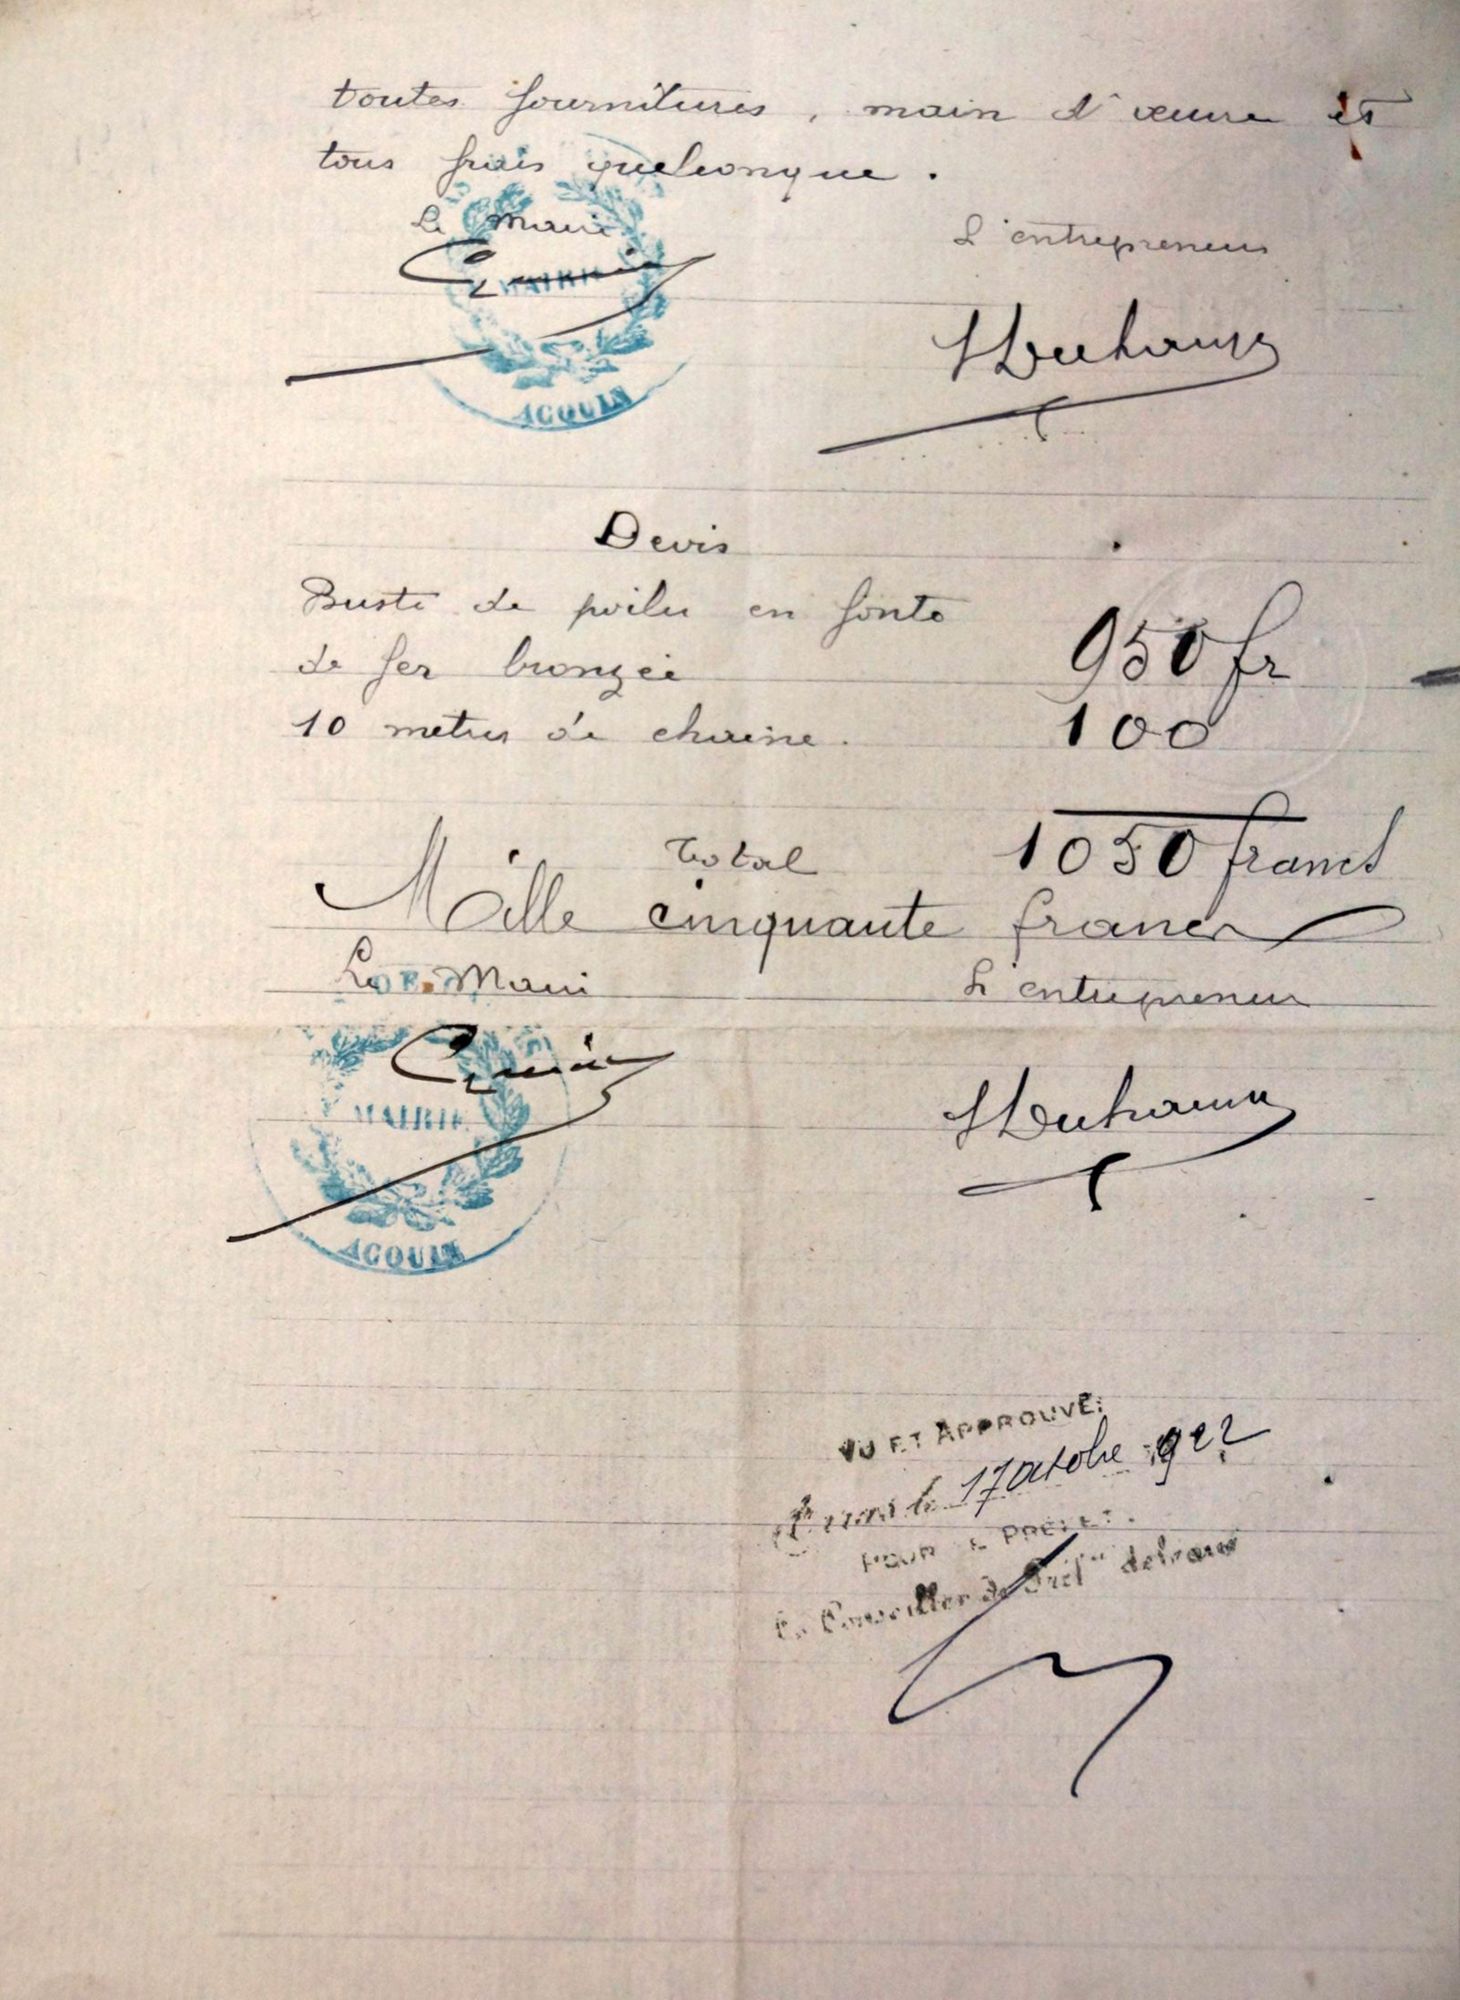 toutes fournitures, main d'œuvre et
tous frais quelconque.
Le Maire
L'entrepreneur
MAIRIE
ACQUIN
Devis
Buste de poilu en fonte
de fer bronzée
950 fr
10 mètres de chaine.
100
Total
1050 francs
Mille cinquante francs
Le Maire
L'entrepreneur
MAIRIE
ACQUIN
VU ET APPROUVÉ:
Arras le 17 octobre 1922
POUR LE PRÉFET.
Le Conseiller de Préf^re délégué